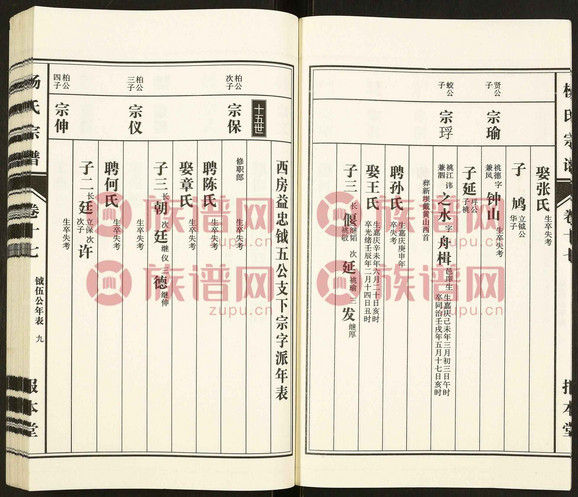 族谱网
zupu.cn
娶张氏
生卒失考
子 鸠 立钺公 华子
贤公
子 宗瑜
桃德 字
兼凤 钟山
生卒失考
子延 浮公 子桃
蛟公
子 宗琈
桃江 讳 之水 字 舟楫 邑庠生 生嘉庆己未年三月初三日午时
兼泗 卒同治壬戌年五月十七日亥时
葬新坝戴黄山西首
聘孙氏 生嘉庆庚申年
卒失考
娶王氏 生嘉庆辛未年六月二十日亥时
卒光绪壬辰年二月十四日丑时
子三 长 偃 继韬 桃敬 次 延 桃瑜 三 发 继厚
西房益忠钺五公支下宗字派年表
十五世
柏公
次子 宗保
修职郎
聘陈氏
生卒失考
娶章氏
生卒失考
子三 长 朝 次 廷 继仪 三 德 继伸
柏公
三子 宗仪
聘何氏
生卒失考
子二 长 廷 立保 次子 次 许
柏公
四子 宗伸
生卒失考
杨氏宗谱
卷十七
钺伍公年表 九
报本堂